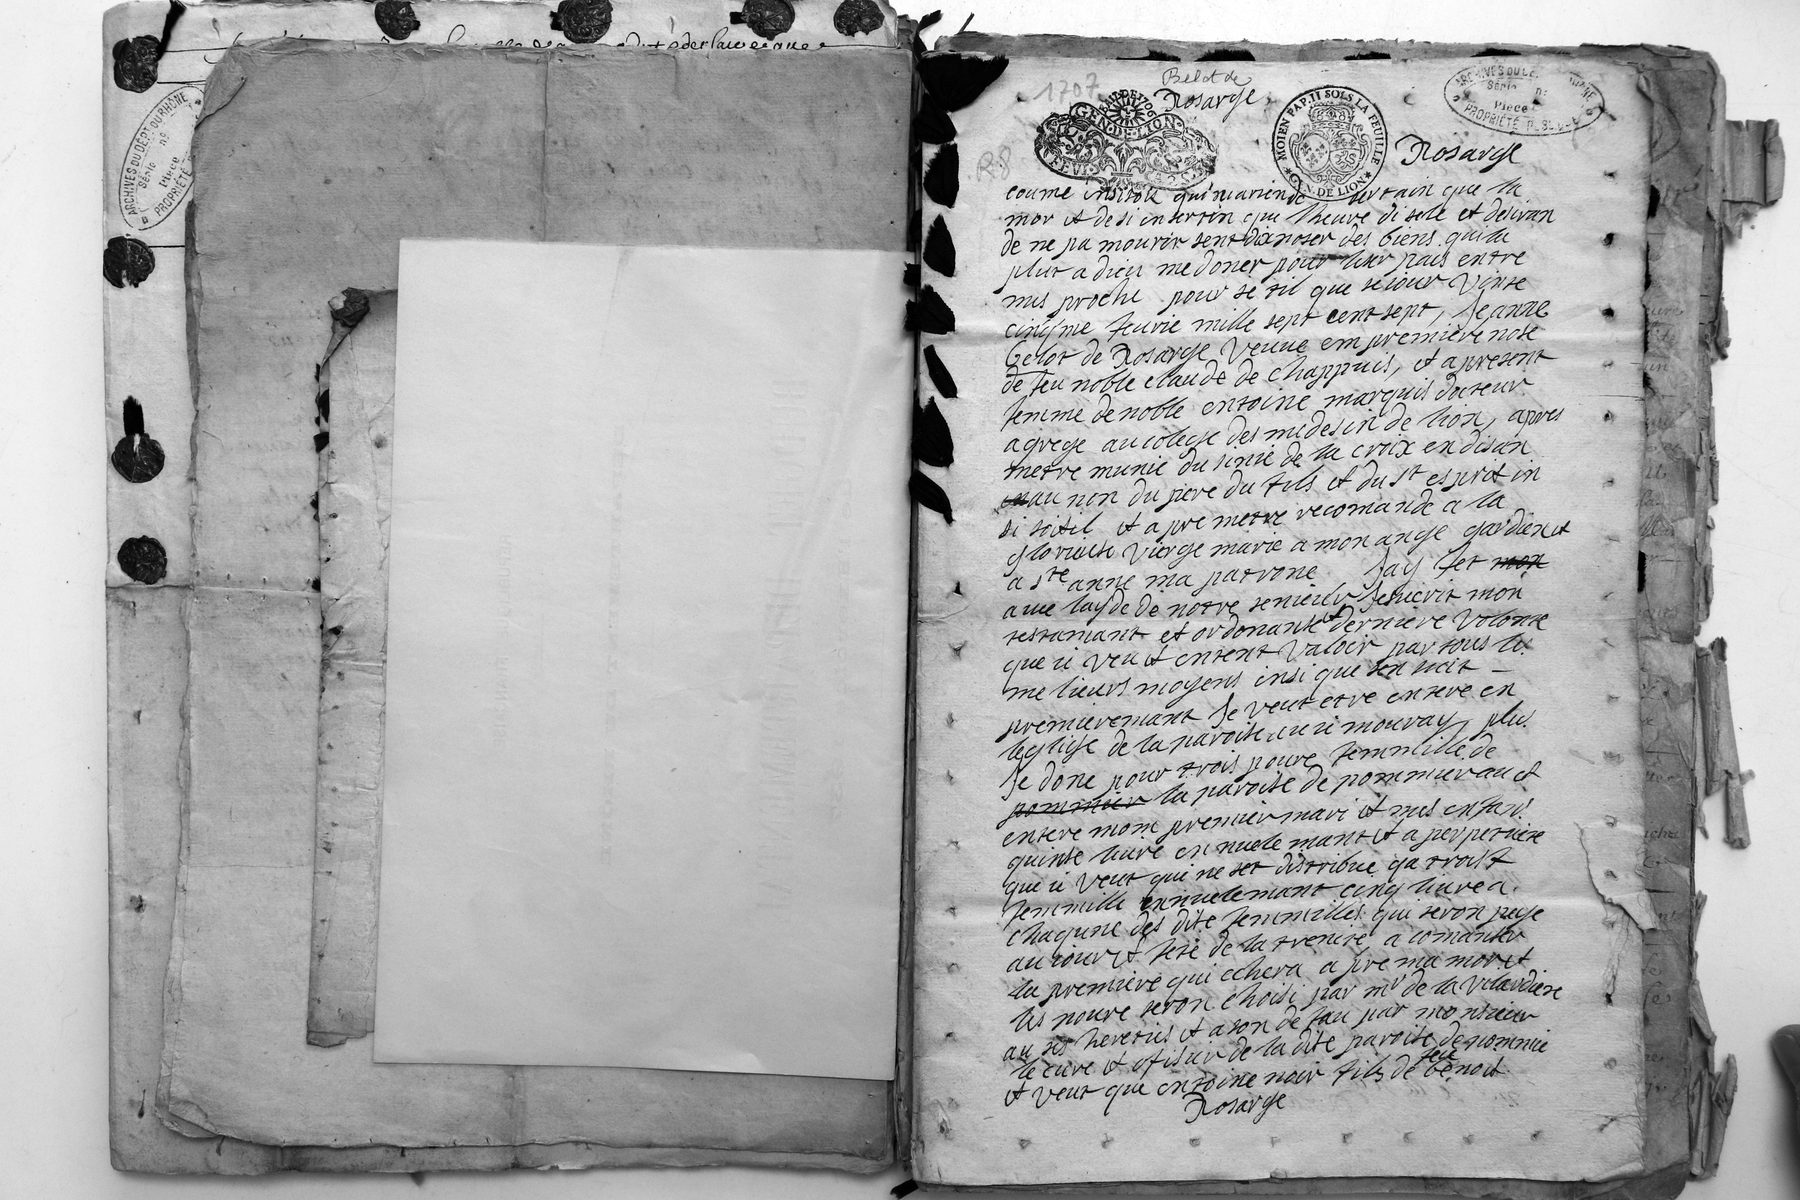 ARCHIVES DU DÉPT DU RHÔNE
Série nº
Pièce
PROPRIÉTÉ
1707
Belot de
Rosarge
GEN. DE LION
MOIEN PAP. II SOLS LA FEUILLE
GEN. DE LION
ARCHIVES DU
Série nº
Pièce
PROPRIÉTÉ PUBLIQUE
R8
Rosarge
come insi soit qui nia rien de sertain que la
mor et de si insertin que lheure di sele et desiran
de ne pa mourir sent disposer des biens qui la
plut a dieu me doner pour leser pais entre
mes proche pour se til que se iour vinte
cinqme feurie mille sept cent sept, Jeanne
belot de Rosarge veuue em premiere nose
de feu noble claude de chappuis, et apresent
femme de noble entoine marquis docteur
agrege au colege des medesin de lion, apres
metre munie du sinie de la croix en disan
au non du pere du fils et du st esprit in
si soitil et apre metre recomande a la
glorieuse vierge marie a mon ange gardien et
a ste anne ma patrone Jay fet mon
aue layde de notre senieur Je ecrit mon
testamant et ordonanse et derniere volonte
que ie veu et entent valoir par tous les
melieurs moyens insi que sen suit
premieremant Je veut etre entere en
leglise de la paroise ou ie mouray, plus
Je done pour trois poure femmille de
pommier la paroise de pommier au et
entere mom premier mari et mes enfans
quinse liure ennuelemant et a perpetuite
que ie veut qui ne set distribue qa trois
femmille ennuelemant cinq liure a
chaqune des dite femmilles qui seron paye
au iour et fete de la trenite a comanser
la premiere qui echera apre ma mor et
les poure seron choisi par mr de la valardiere
au ses hereties et a son defau par monsieur
le cure et ofisier de la dite paroise de pommie
et veut que entoine noir fils de feu benoit
Rosarge